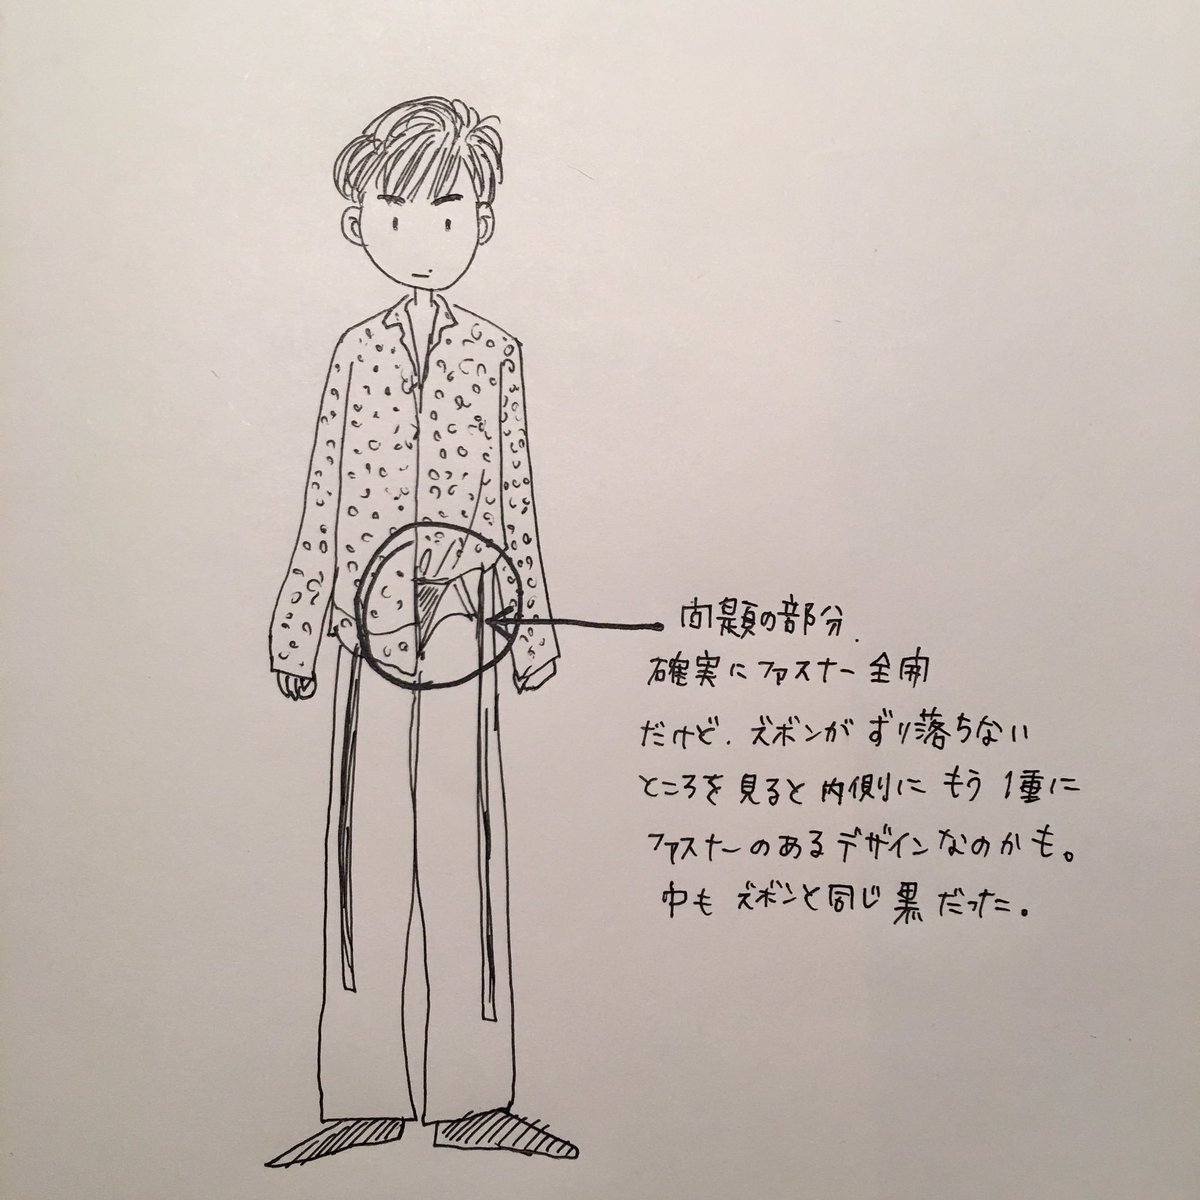 問題の部分.
確実にファスナー全開
だけど、ズボンがずり落ちない
ところを見ると内側にもう1重に
ファスナーのあるデザインなのかも。
中もズボンと同じ黒だった。